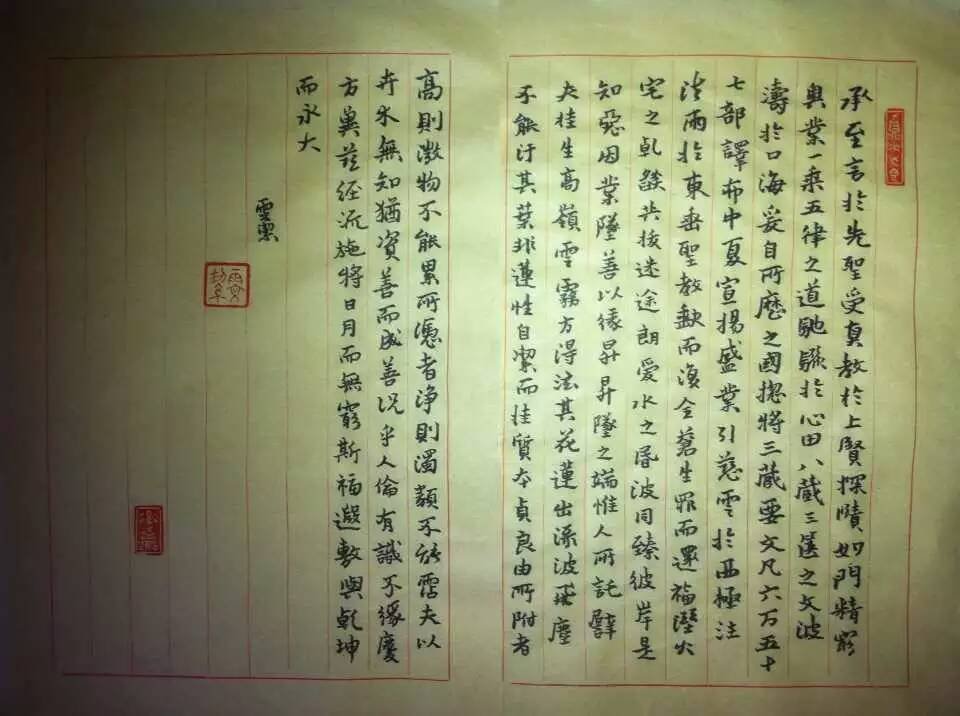 承至言於先聖受真教於上賢探賾妙門精窮
奧業一乘五律之道馳驟於心田八藏三篋之文波
濤於口海爰自所歷之國揔將三藏要文凡六百五十
七部譯布中夏宣揚盛業引慈雲於西極注
法雨於東垂聖教缺而復全蒼生罪而還福溼火
宅之乾燄共拔迷途朗愛水之昏波同臻彼岸是
知惡因業墜善以緣昇昇墜之端惟人所託譬
夫桂生高嶺雲露方得法其花蓮出淥波飛塵
不能汙其葉非蓮性自潔而桂質本貞良由所附者
高則微物不能累所憑者淨則濁類不能霑夫以
卉木無知猶資善而成善況乎人倫有識不緣慶
方冀茲經流施將日月而無窮斯福遐敷與乾坤
而永大
雲潔